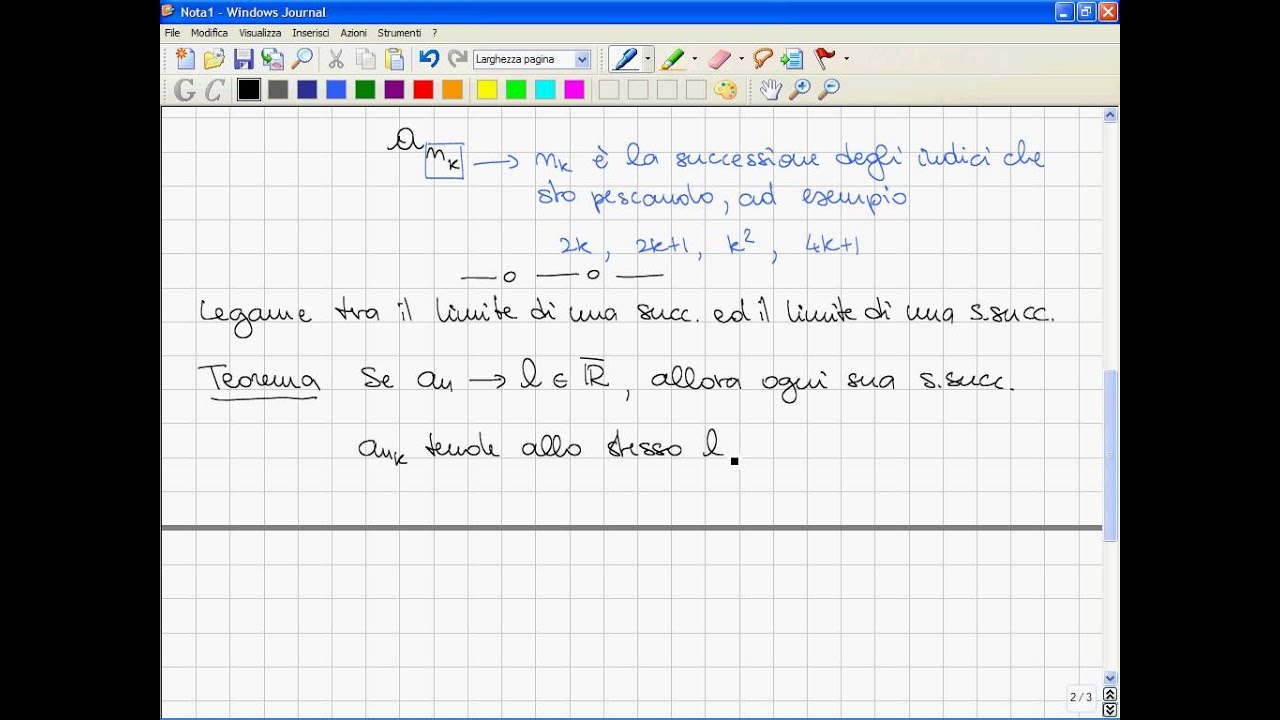 Nota1 - Windows Journal
File Modifica Visualizza Inserisci Azioni Strumenti ?
Larghezza pagina
G C
a n_k → n_k è la successione degli indici che
sto pescando, ad esempio
2k, 2k+1, k², 4k+1
— o — o —
Legame tra il limite di una succ. ed il limite di una s.succ.
Teorema Se an → l ∈ R̅, allora ogni sua s.succ.
a n_k tende allo stesso l.
2 / 3